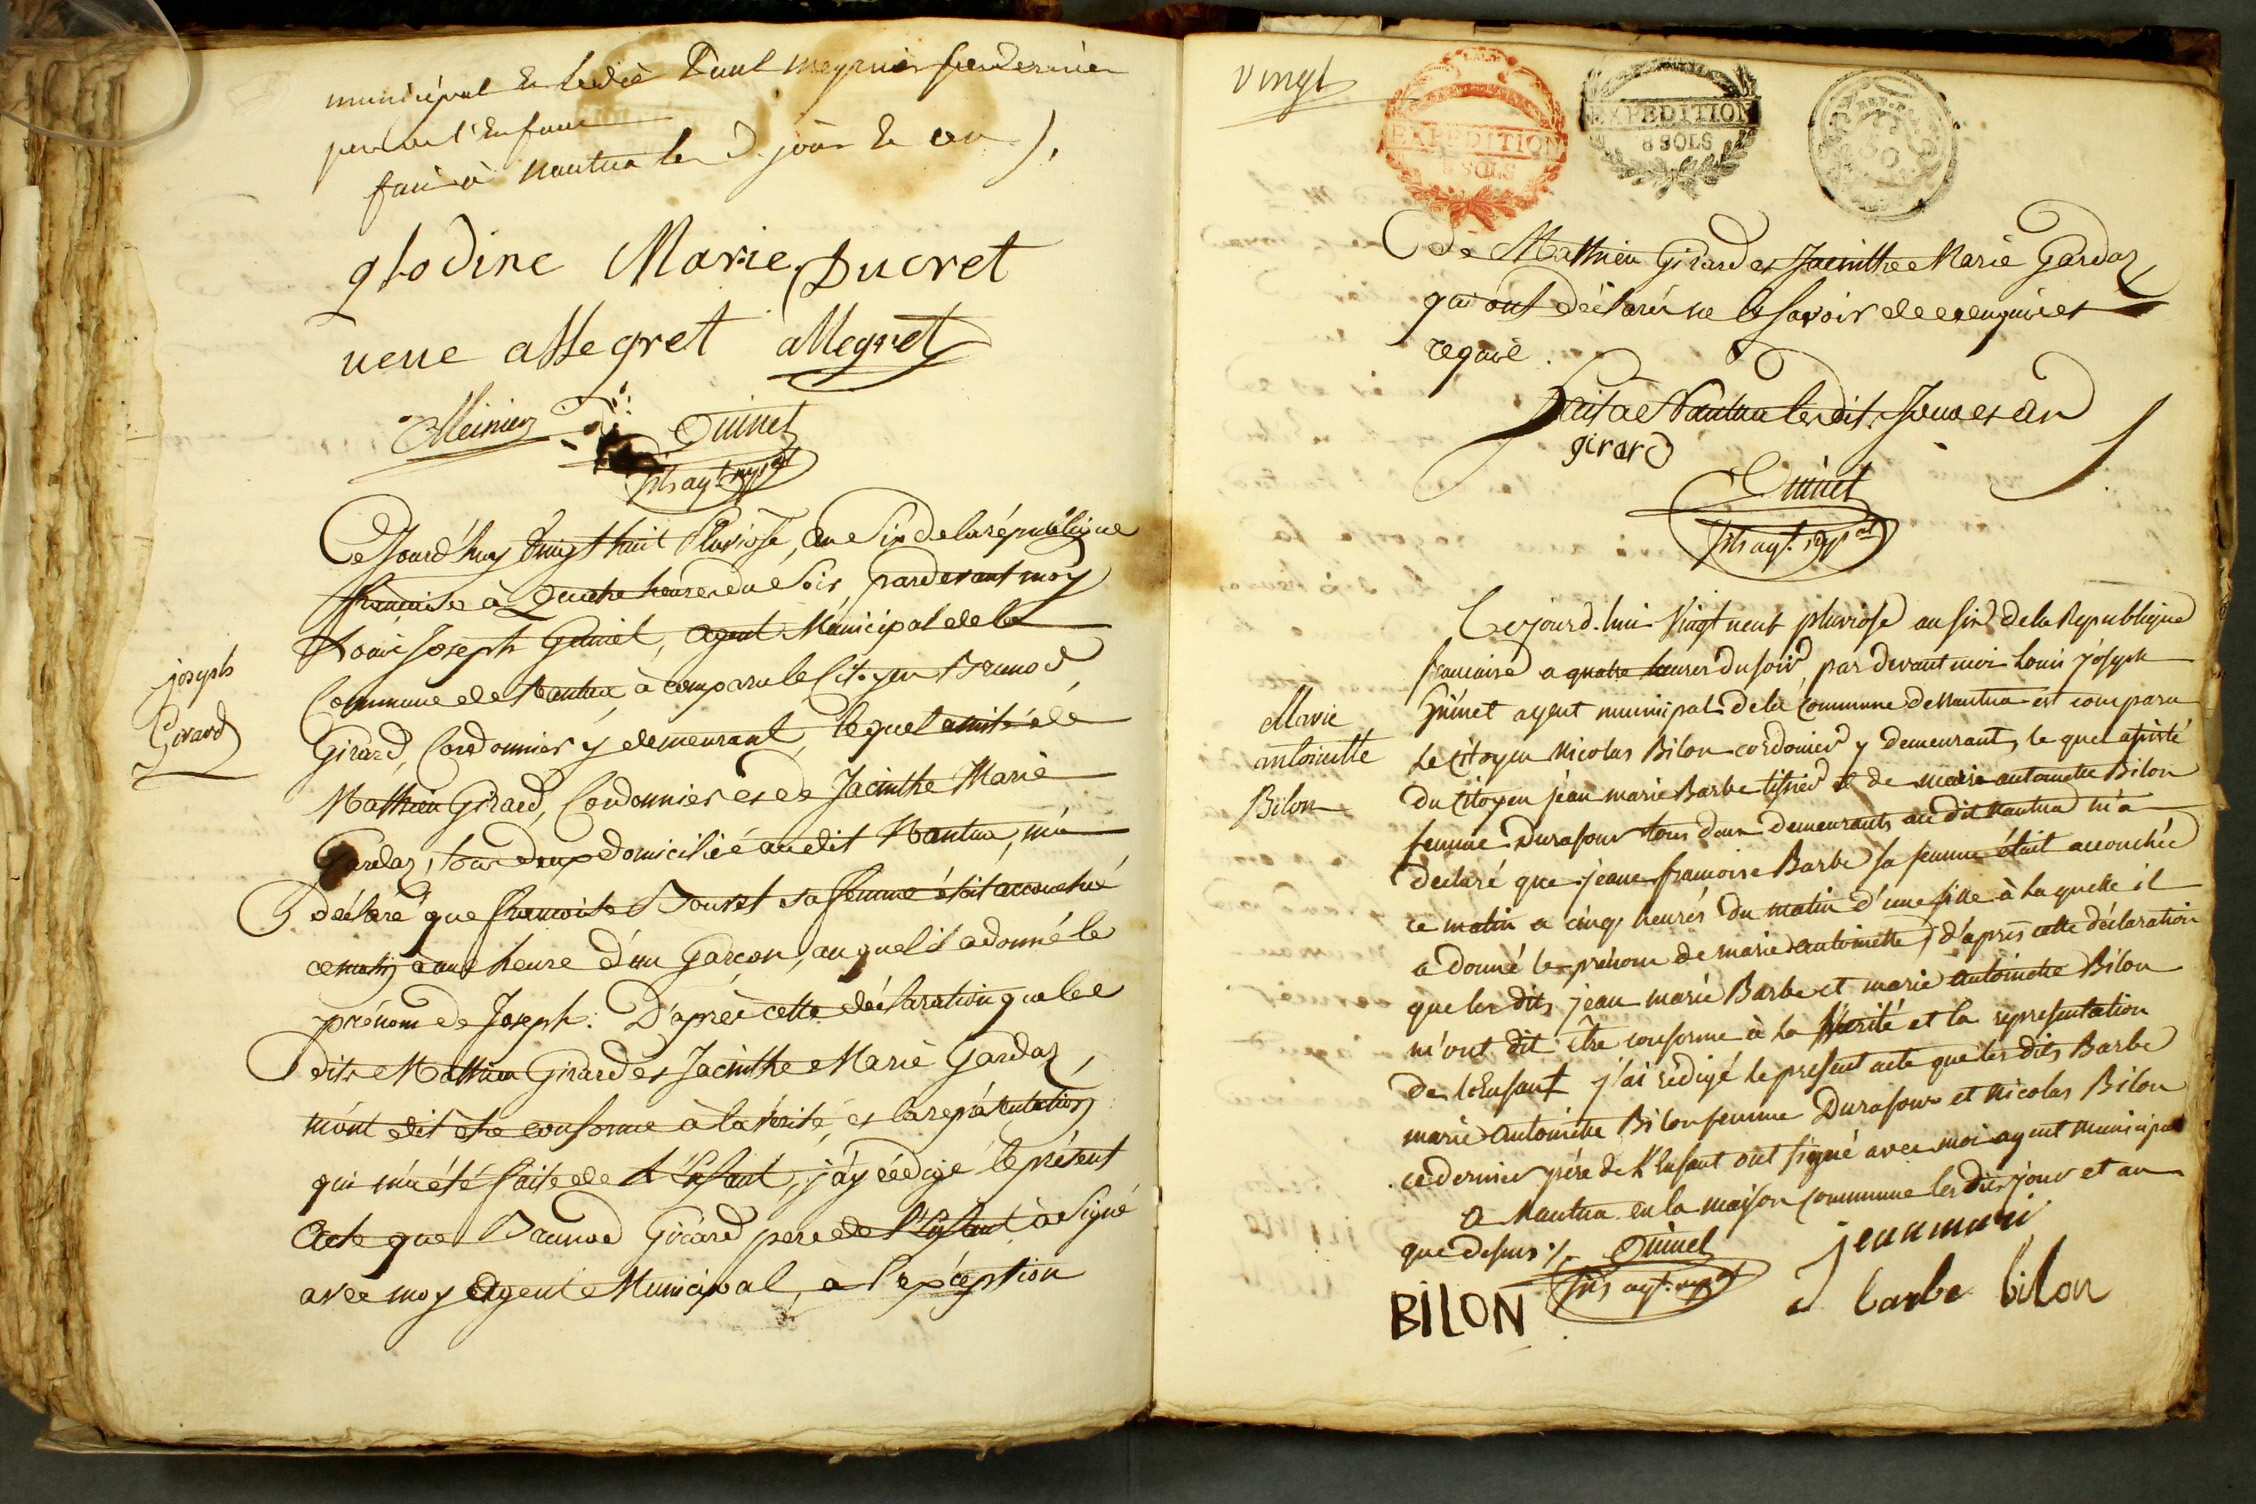 municipal et ledit Paul meynier ce dernier
pere de l'Enfant
fait à Nantua les d. jour et an
glodine Marie Ducret
veuve allegret allegret
Meinier Guinet
fils agt. mpal
Joseph
Girard
Cejourd'huy vingt huit Pluviose, an Six de la république
française à Quatre heures du Soir, pardevant moy
Louis Joseph Guinet, agent Municipal de la
Commune de Nantua, à comparu le Citoyen Brunod
Girard, Cordonnier y demeurant, lequel assisté de
Mathieu Girard, Cordonnier et de Jacinthe Marie
Gardaz, tous deux domicilié audit Nantua, m'a
déclaré que francoise Bouvet sa femme étoit accouchée
ce matin à une heure d'un Garçon, auquel il a donné le
prénom de Joseph. D'après cette déclaration que les
dits Mathieu Girard et Jacinthe Marie Gardaz,
m'ont dit etre conforme à la vérité, et la représentation
qui m'a été faite de l'Enfant, j'ay rédigé le présent
Acte que Brunod Girard pere de l'Enfant à Signé
avec moy Agent Municipal, à l'exception
vingt
EXPEDITION
8 SOLS
EXPEDITION
8 SOLS
REP.
de Mathieu Girard et Jacinthe Marie Gardaz
qui ont déclarés ne le Savoir de ce enquis et
requis.
Fait à Nantua lesdits Jour et an
girard
Guinet
fils agt. mpal
Marie
antoinette
Bilon
Cejourd.hui vingt neuf pluviose an six de la Republique
francaise a quatre heures du soir, par devant moi Louis Joseph
Guinet agent municipal de la Commune de Nantua est comparu
le Citoyen Nicolas Bilon cordonier y demeurant, le quel assisté
du Citoyen jean marie Barbe tissier et de marie antoinette Bilon
femme Durafour tous deux demeurants au dit Nantua m'a
declaré que jeane francoise Barbe sa femme était accouchée
ce matin a cinq heures du matin d'une fille à laquelle il
a donné le prénom de marie antoinette, d'après cette déclaration
que les dits jean marie Barbe et marie antoinette Bilon
m'ont dit être conforme à la Verité et la representation
de l'Enfant j'ai rédigé le present acte que les dits Barbe
marie antoinette Bilon femme Durafour et Nicolas Bilon
ce dernier pére de l'Enfant ont signé avec moi agent municipal
a Nantua en la maison commune les dits jour et an
que dessus ./. Guinet jeanmari
BILON fils agt. mpal barbe bilon